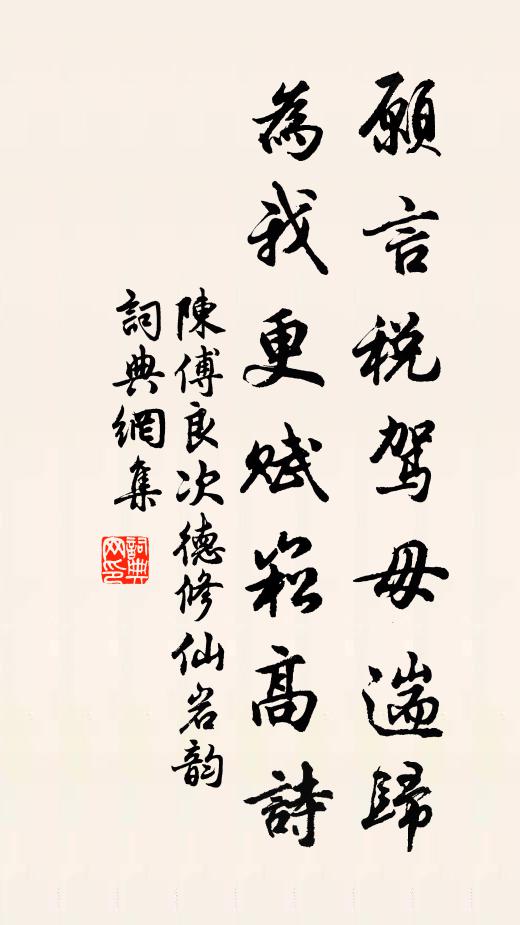 願言税駕毋遄歸
為我更賦崧高詩
陳傅良次德修仙岩韵
詞典網集
詞典網印